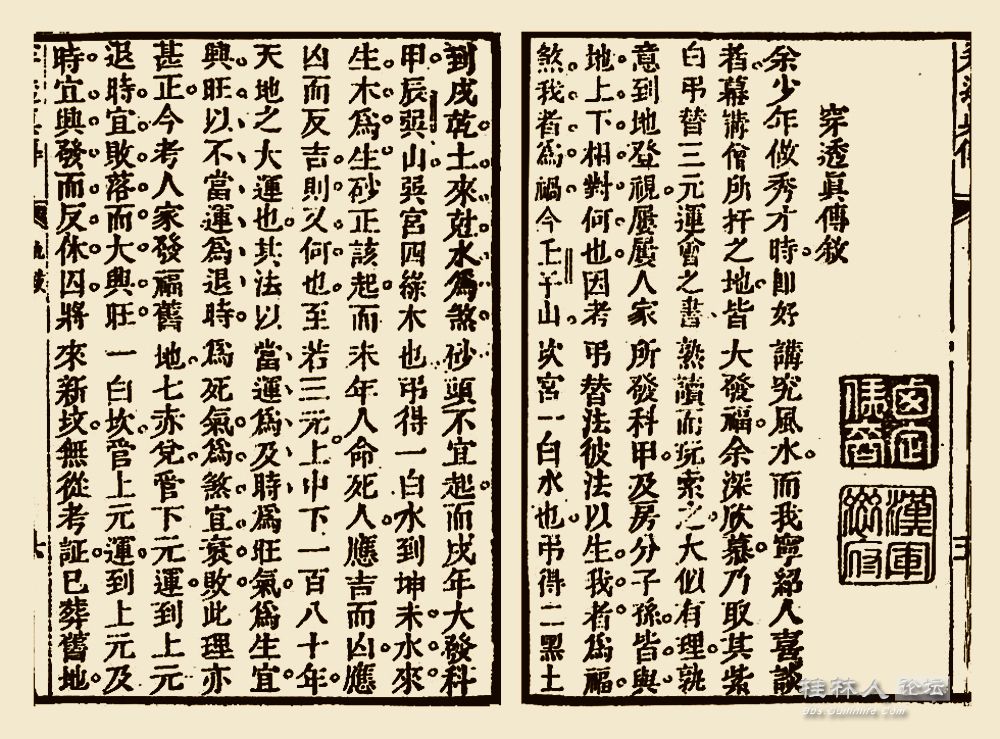 穿透真傳敘
余少年做秀才時即好講究風水而我寧紹人喜談
者幕講僧所扞之地皆大發福余深欣慕乃取其紫
白吊替三元運會之書熟讀而玩索之大似有理孰
意到地登視屢屢人家所發科甲及房分子孫皆與
地上下相對何也因考吊替法彼法以生我者為福
煞我者為禍今壬子山坎宮一白水也吊得二黑土
到戌乾土來尅水為煞砂頭不宜起而戌年大發科
甲辰巽山巽宮四綠木也吊得一白水到坤未水來
生木為生砂正該起而未年人命死人應吉而凶應
凶而反吉則又何也至若三元上中下一百八十年
天地之大運也其法以當運為及時為旺氣為生宜
興旺以不當運為退時為死氣為煞宜衰敗此理亦
甚正今考人家發福舊地七赤兌管下元運到上元
退時宜敗落而大興旺一白坎管上元運到上元及
時宜興發而反休囚將來新坟無從考証已葬舊地
漢軍
桂林人 论坛